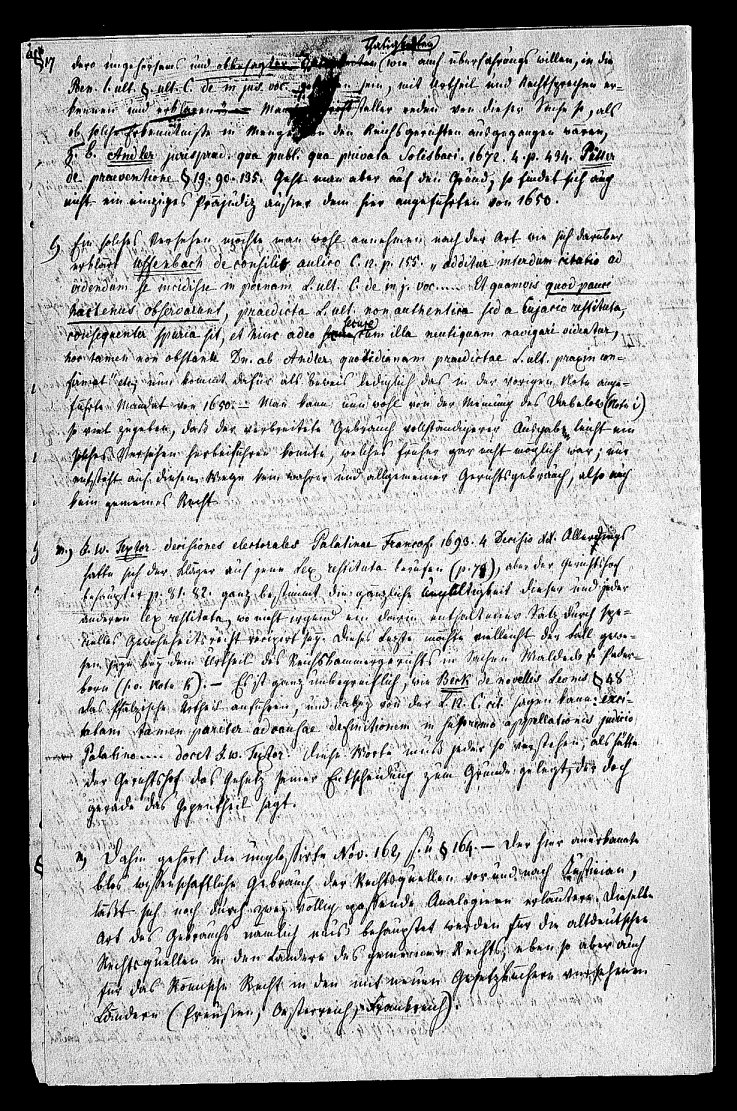 § 17
Thätigkeiten
dero ungehorsams und obbesagter (wie auch überfahrungs willen, in die
Pen. l. ult. § ult. C. de in jus voc. gefallen sein, mit Urtheil und Rechtsprechen er-
kennen und erklären Manche Schriftsteller reden von dieser Sache so, als
ob solche Erkenntnisse in Menge von den Reichsgerichten ausgegangen wären,
z. B. Andler jurisprud. qua publ. qua privata Solisbaci. 1672. 4. p. 434. Pütter
de praeventione § 19. 90. 135. Geht man aber auf den Grund, so findet sich auch
nicht ein einziges Präjudiz außer dem hier angeführten von 1650.
l) Ein solches Versehen möchte man wohl annehmen nach der Art wie sich darüber
erklärt Uffenbach de consilio aulico C. 12. p. 155. „additur interdum citatio ad
videndum se incidisse in poenam L. ult. C. de in j. voc. .... Et quamvis quod pauci
hactenus observarunt, praedicta L. ult. non authentica sed a Cujacio restituta,
consequenter spuria sit, et hinc adeo secure cum illa neutiquam navigari videatur,
hoc tamen non obstante Dn. ab Andler, quotidianam praedictae L. ult. praxin con-
firmat" etc; nun kommt dafür als Beweis lediglich das in der vorigen Note ange-
führte Mandat von 1650. — Man kann nun wohl von der Meinung des Dabelow (Note i)
so viel zugeben, daß der verbreitete Gebrauch vollständigerer Ausgaben leicht ein
solches Versehen herbeiführen konnte, welches früher gar nicht möglich war; nur
entsteht auf diesem Wege kein wahrer und allgemeiner Gerichtsgebrauch, also auch
kein gemeines Recht
m) J. W. Textor decisiones electorales Palatinae Francof. 1693. 4 Decisio XX. Allerdings
hatte sich der Kläger auf jene Lex restituta berufen (p. 78), aber der Gerichtshof
behauptet p. 81. 82. ganz bestimmt die gänzliche Ungültigkeit dieser und jeder
anderen Lex restituta, wo nicht irgend ein darin enthaltener Satz durch spe-
cielles Gewohnheitsrecht recipirt sey. Dieses Letzte möchte vielleicht der Fall gewe-
sen seyn bey dem Urtheil des Reichskammergerichts in Sachen Waldeck p. Pader-
born (s. o. Note k). — Es ist ganz unbegreiflich, wie Beck de novellis Leonis § 48
das Pfälzische Urtheil anführen, und dabey von der L. 12. C. cit. sagen kann: exci-
tatam tamen pariter ad causae definitionem in supremo appellationis judicio
Palatino .... docet J. W. Textor. Diese Worte muß jeder so verstehen, als hätte
der Gerichtshof das Gesetz seiner Entscheidung zum Grunde gelegt, der doch
gerade das Gegentheil sagt.
n) Dahin gehört die unglossirte Nov. 162, s. u. § 164. — Der hier anerkannte
blos wissenschaftliche Gebrauch der Rechtsquellen vor und nach Justinian,
läßt sich noch durch zwei völlig passende Analogieen erläutern. Dieselbe
Art des Gebrauchs nämlich muß behauptet werden für die altdeutschen
Rechtsquellen in den Ländern des gemeinen Rechts, eben so aber auch
für das Römische Recht in den mit neuen Gesetzbüchern versehenen
Ländern (Preußen, Oesterreich, Frankreich).